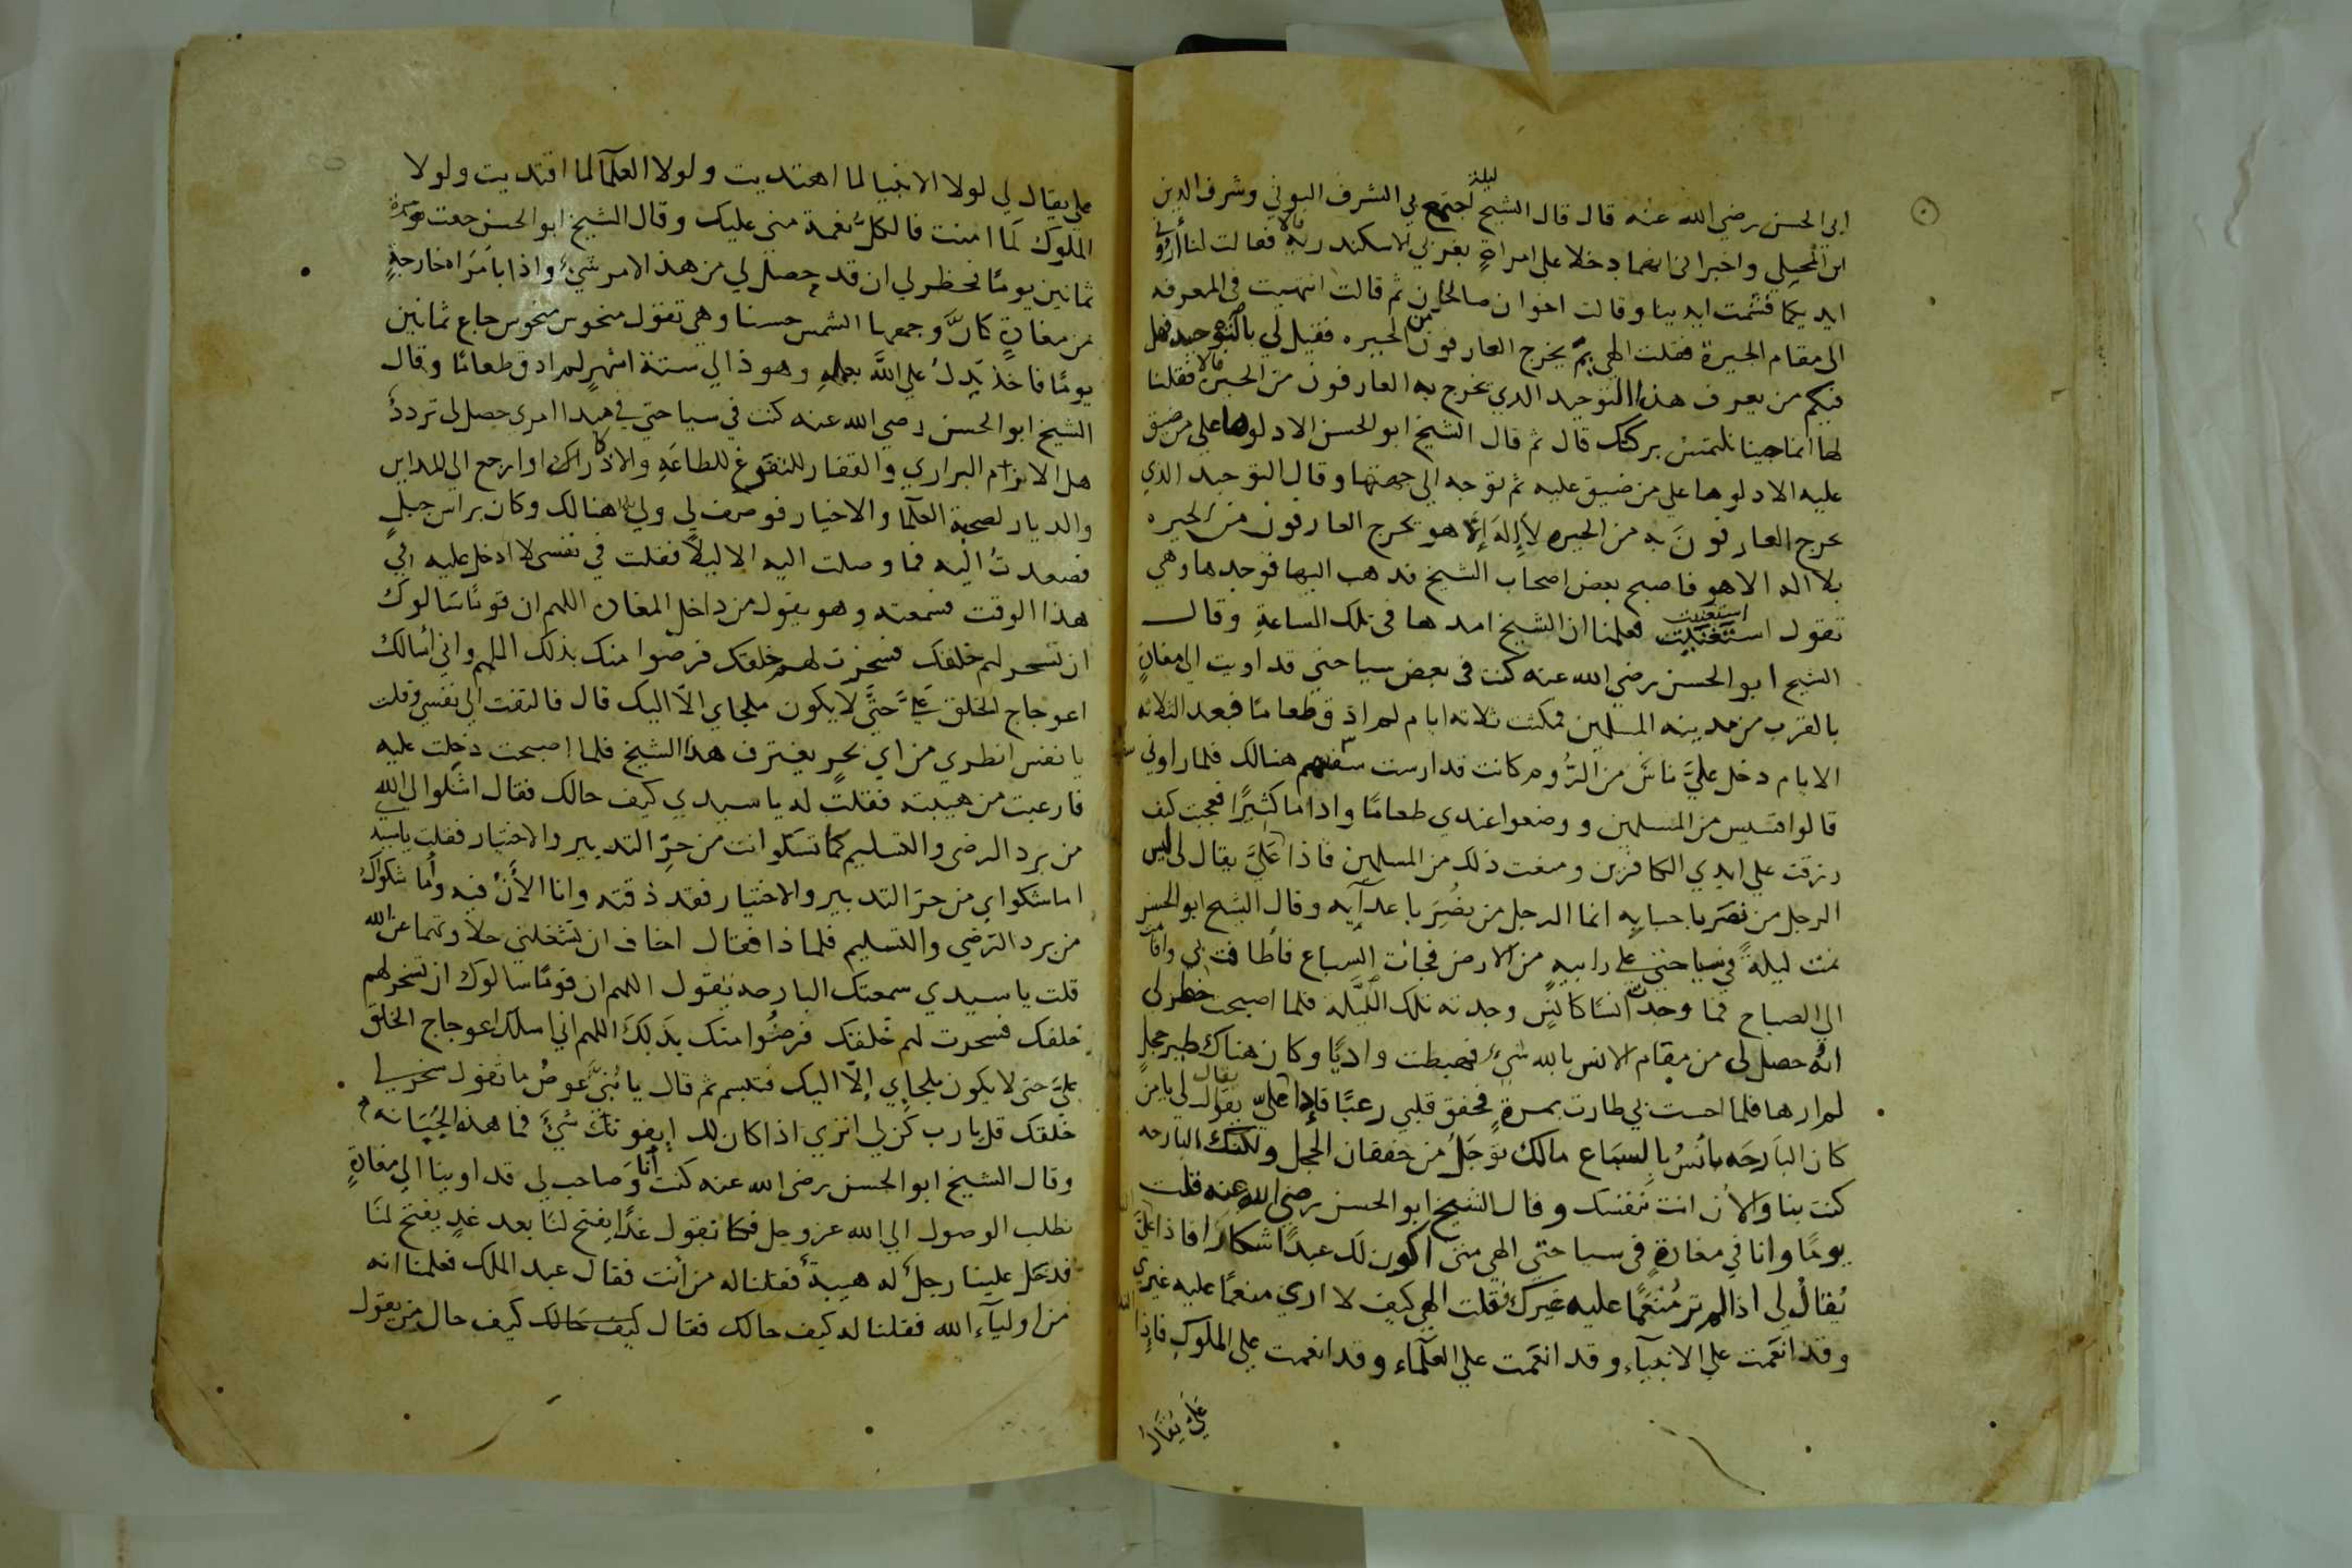 ابي الحسن رضي الله عنه قال قال الشيخ اجتمع بي ليلة الشرف البوني وشرف الدين
ابن المحيلي واخبراني انهما دخلا على امراة بغربي الاسكندرية فقالت لنا أروني
ايديكما فشمت ايدينا وقالت اخوان صالحان ثم قالت انتهيت في المعرفه
الى مقام الحيرة فقلت الهي بم يخرج العارفون من الحيره فقيل لي بالتوحيد فهل
فيكم من يعرف هذا التوحيد الدي يخرج به العارفون من الحيرة قالا فقلنا
لها انما جينا نلتمس بركتك قال ثم قال الشيخ ابو الحسن الا دلوها على من ضيق
عليه الا دلوها على من ضيق عليه ثم توجه الى جهتها وقال التوحيد الذي
يخرج العارفون به من الحيره لا إله إلا هو يخرج العارفون من الحيره
بلا اله الا هو فاصبح بعض اصحاب الشيخ فذهب اليها فوجدها وهي
تقول استغنيت استغنيت فعلمنا ان الشيخ امدها في تلك الساعة وقال
الشيخ ابو الحسن رضي الله عنه كنت في بعض سياحتي قد اويت الى مغارة
بالقرب من مدينه المسلمين فمكثت ثلاثه ايام لم اذق طعامًا فبعد الثلاثه
الايام دخل عليَّ ناسٌ من الرُّوم كانت قد ارست سفنهم هنالك فلما راوني
قالوا قسيس من المسلمين ووضعوا عندي طعامًا واداما كثيرًا فعجبت كيف
رزقت على ايدي الكافرين ومنعت ذلك من المسلمين فاذا عَليَّ يقال لي ليس
الرجل من نصَر باحبابه انما الرجل من نُصِرَ باعدآيه وقال الشيخ ابو الحسن
نمت ليلةً في سياحتي على رابيه من الارض فجات السباع فأطافت بي واقامت
الى الصباح فما وجدت انسًا كانسٍ وجدته تلك الليله فلما اصبحت خطر لي
انه حصل لي من مقام الانس بالله شيء فهبطت واديًا وكان هناك طير حجلٍ
لم ارها فلما احست بي طارت بمرةٍ فخفق قلبي رعبًا فاذا عليّ يقال لي يا من
كان البارحَه يأنسُ بالسباع مالك توجَلُ من خفقان الحجل ولكنك البارحه
كنت بنا والآن انت بنفسك وقال الشيخ ابو الحسن رضي الله عنه قلت
يومًا وانا في مغارةٍ في سياحتي الهي متى اكون لك عبدًا شكارا فاذا عليَّ
يُقالُ لي اذا لم تر مُنعَمًا عليه غيرك فقلت الهي كيف لا ارى منعمًا عليه غيري
وقد انعمت على الانبيآء وقد انعمت على العلمآء وقد انعمت على الملوك فإذا
عَليَّ يُقالُ
علي يقال لي لولا الانبيا لما اهتديت ولولا العلمآ لما اقتديت ولولا
الملوك لَما امنت فالكلُّ نعمة مني عليك وقال الشيخ ابو الحسن جعت مرة
ثمانين يومًا فخطر لي ان قد حصل لي من هذا الامر شيءٌ واذا بامراة خارجةٍ
من مغارةٍ كأنَّ وجهها الشمس حسنا وهي تقول منحوس منحوس جاع ثمانين
يومًا فاخذ يَدلُ على الله بعمله وهو ذا لي ستة اشهرٍ لم اذق طعامًا وقال
الشيخ ابو الحسن رضي الله عنه كنت في سياحتي في مبدا امري حصل لي تردد
هل الازم البراري والقفار للتفرغ للطاعَةِ والاذكار او ارجع الى المداين
والديار لصحبة العلمآ والاخيار فوصف لي ولي هنالك وكان براس جبلٍ
فصعدتُ اليه فما وصلت اليه الا ليلاً فقلت في نفسى لا ادخل عليه في
هذا الوقت فسمعته وهو يقول من داخل المغارة اللهم ان قومًا سَالوك
ان تسخر لهم خلقك فسخرت لهم خلقك فرضوا منك بذلك اللهم واني أسالك
اعوجاج الخلق عَليَّ حتَّى لا يكون ملجاي الا اليك قال فالتفت الى نفسي وقلت
يا نفس انظري من اي بحرٍ يغترف هذا الشيخ فلما اصبحت دخلت عليه
فارعبت من هيبته فقلت له يا سيدي كيف حالك فقال اشكوا الى الله
من برد الرضى والتسليم كما تشكو انت من حرِّ التدبير والاختيار فقلت يا سيدي
اما شكواي من حرّ التدبير والاختيار فقد ذقته وانا الأن فيه وأما شكواك
من برد الرضي والتسليم فلماذا فقال اخاف ان تشغلني حلاوتهما عن الله
قلت يا سيدي سمعتك البارحه تقول اللهم ان قومًا سالوك ان تسخر لهم
خلقك فسخرت لهم خلقك فرضُوا منك بذلك اللهم اني اسلك اعوجاج الخلق
عليَّ حتى لا يكون ملجإي إلّا اليك فتبسم ثم قال يا بُنيَّ عوضُ ما تقول سخر لي
خلقك قل يا رب كن لي اترى اذا كان لك إيفوتك شيءٌ فما هذه الجُبَانه
وقال الشيخ ابو الحسن رضى الله عنه كنت أنا وَصاحب لي قد اوينا الى مغارةٍ
نطلب الوصول الى الله عز وجل فكنا نقول غدًا يفتح لنا بعد غدٍ يفتح لنَا
فدخل علينا رجلٌ له هيبةٌ فقلنا له من أنت فقال عبد الملك فعلمنا انه
من اوليآء الله فقلنا له كيف حالك فقال كيف حَالك كيف حال من يقول